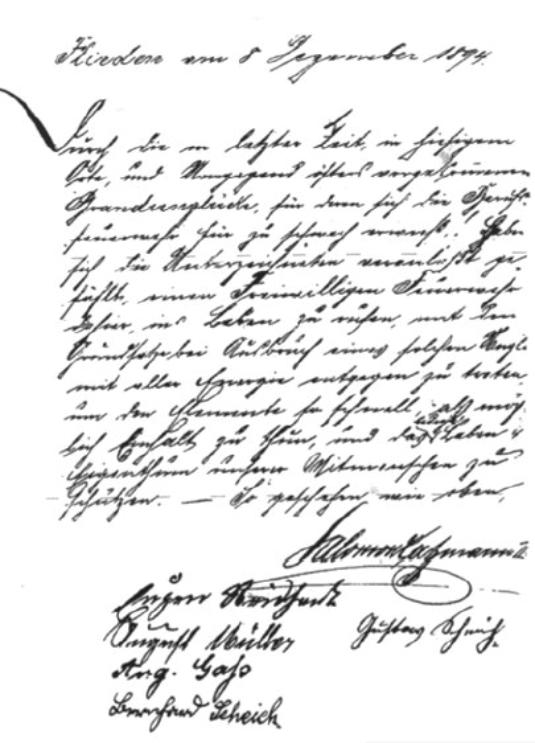 Flieden am 8 Dezember 1894.
Durch die in letzter Zeit, in hiesigem
Orte, und Umgegend öfters vorgekommenen
Brandunglücke, für deren sich die Berufs-
feuerwehr hier zu schwach erweist, haben
sich die Unterzeichneten veranlaßt ge-
fühlt, einen Freiwilligen Feuerwehr
dahier, ins Leben zu rufen, mit dem
Grundsatze, bei Ausbruch eines solchen
mit aller Energie entgegen zu treten,
um den Elemente so schnell, als mög-
lich Einhalt zu thun, und das Leben &
Eigenthum unserer Mitmenschen zu
schützen. — So geschehen wie oben,
Salomon
Eugen
August Müller Gustav
Aug.
Bernhard Scheich